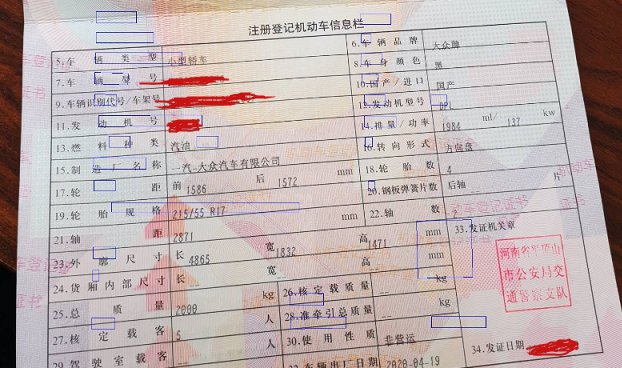 注册登记机动车信息栏
5.车辆类型 小型轿车 6.车辆品牌 大众牌
7.车辆型号 8.车身颜色 黑
9.车辆识别代号/车架号 10.国产/进口 国产
11.发动机号 12.发动机型号
13.燃料种类 汽油 14.排量/功率 1984 ml/ 137 kw
15.制造厂名称 一汽-大众汽车有限公司 16.转向形式 方向盘
17.轮距 前 1586 后 1572 mm 18.轮胎数 4
19.轮胎规格 215/55 R17 20.钢板弹簧片数 后轴 -- 片
21.轴距 2871 mm 22.轴数 2
23.外廓尺寸 长 4865 宽 1832 高 1471 mm 33.发证机关章
24.货厢内部尺寸 长 -- 宽 -- 高 -- mm
河南省平顶山
市公安局交
通警察支队
25.总质量 2000 kg 26.核定载质量 -- kg
27.核定载客 5 人 28.准牵引总质量 -- kg
29.驾驶室载客 -- 人 30.使用性质 非营运
32.车辆出厂日期 2020-04-19 34.发证日期